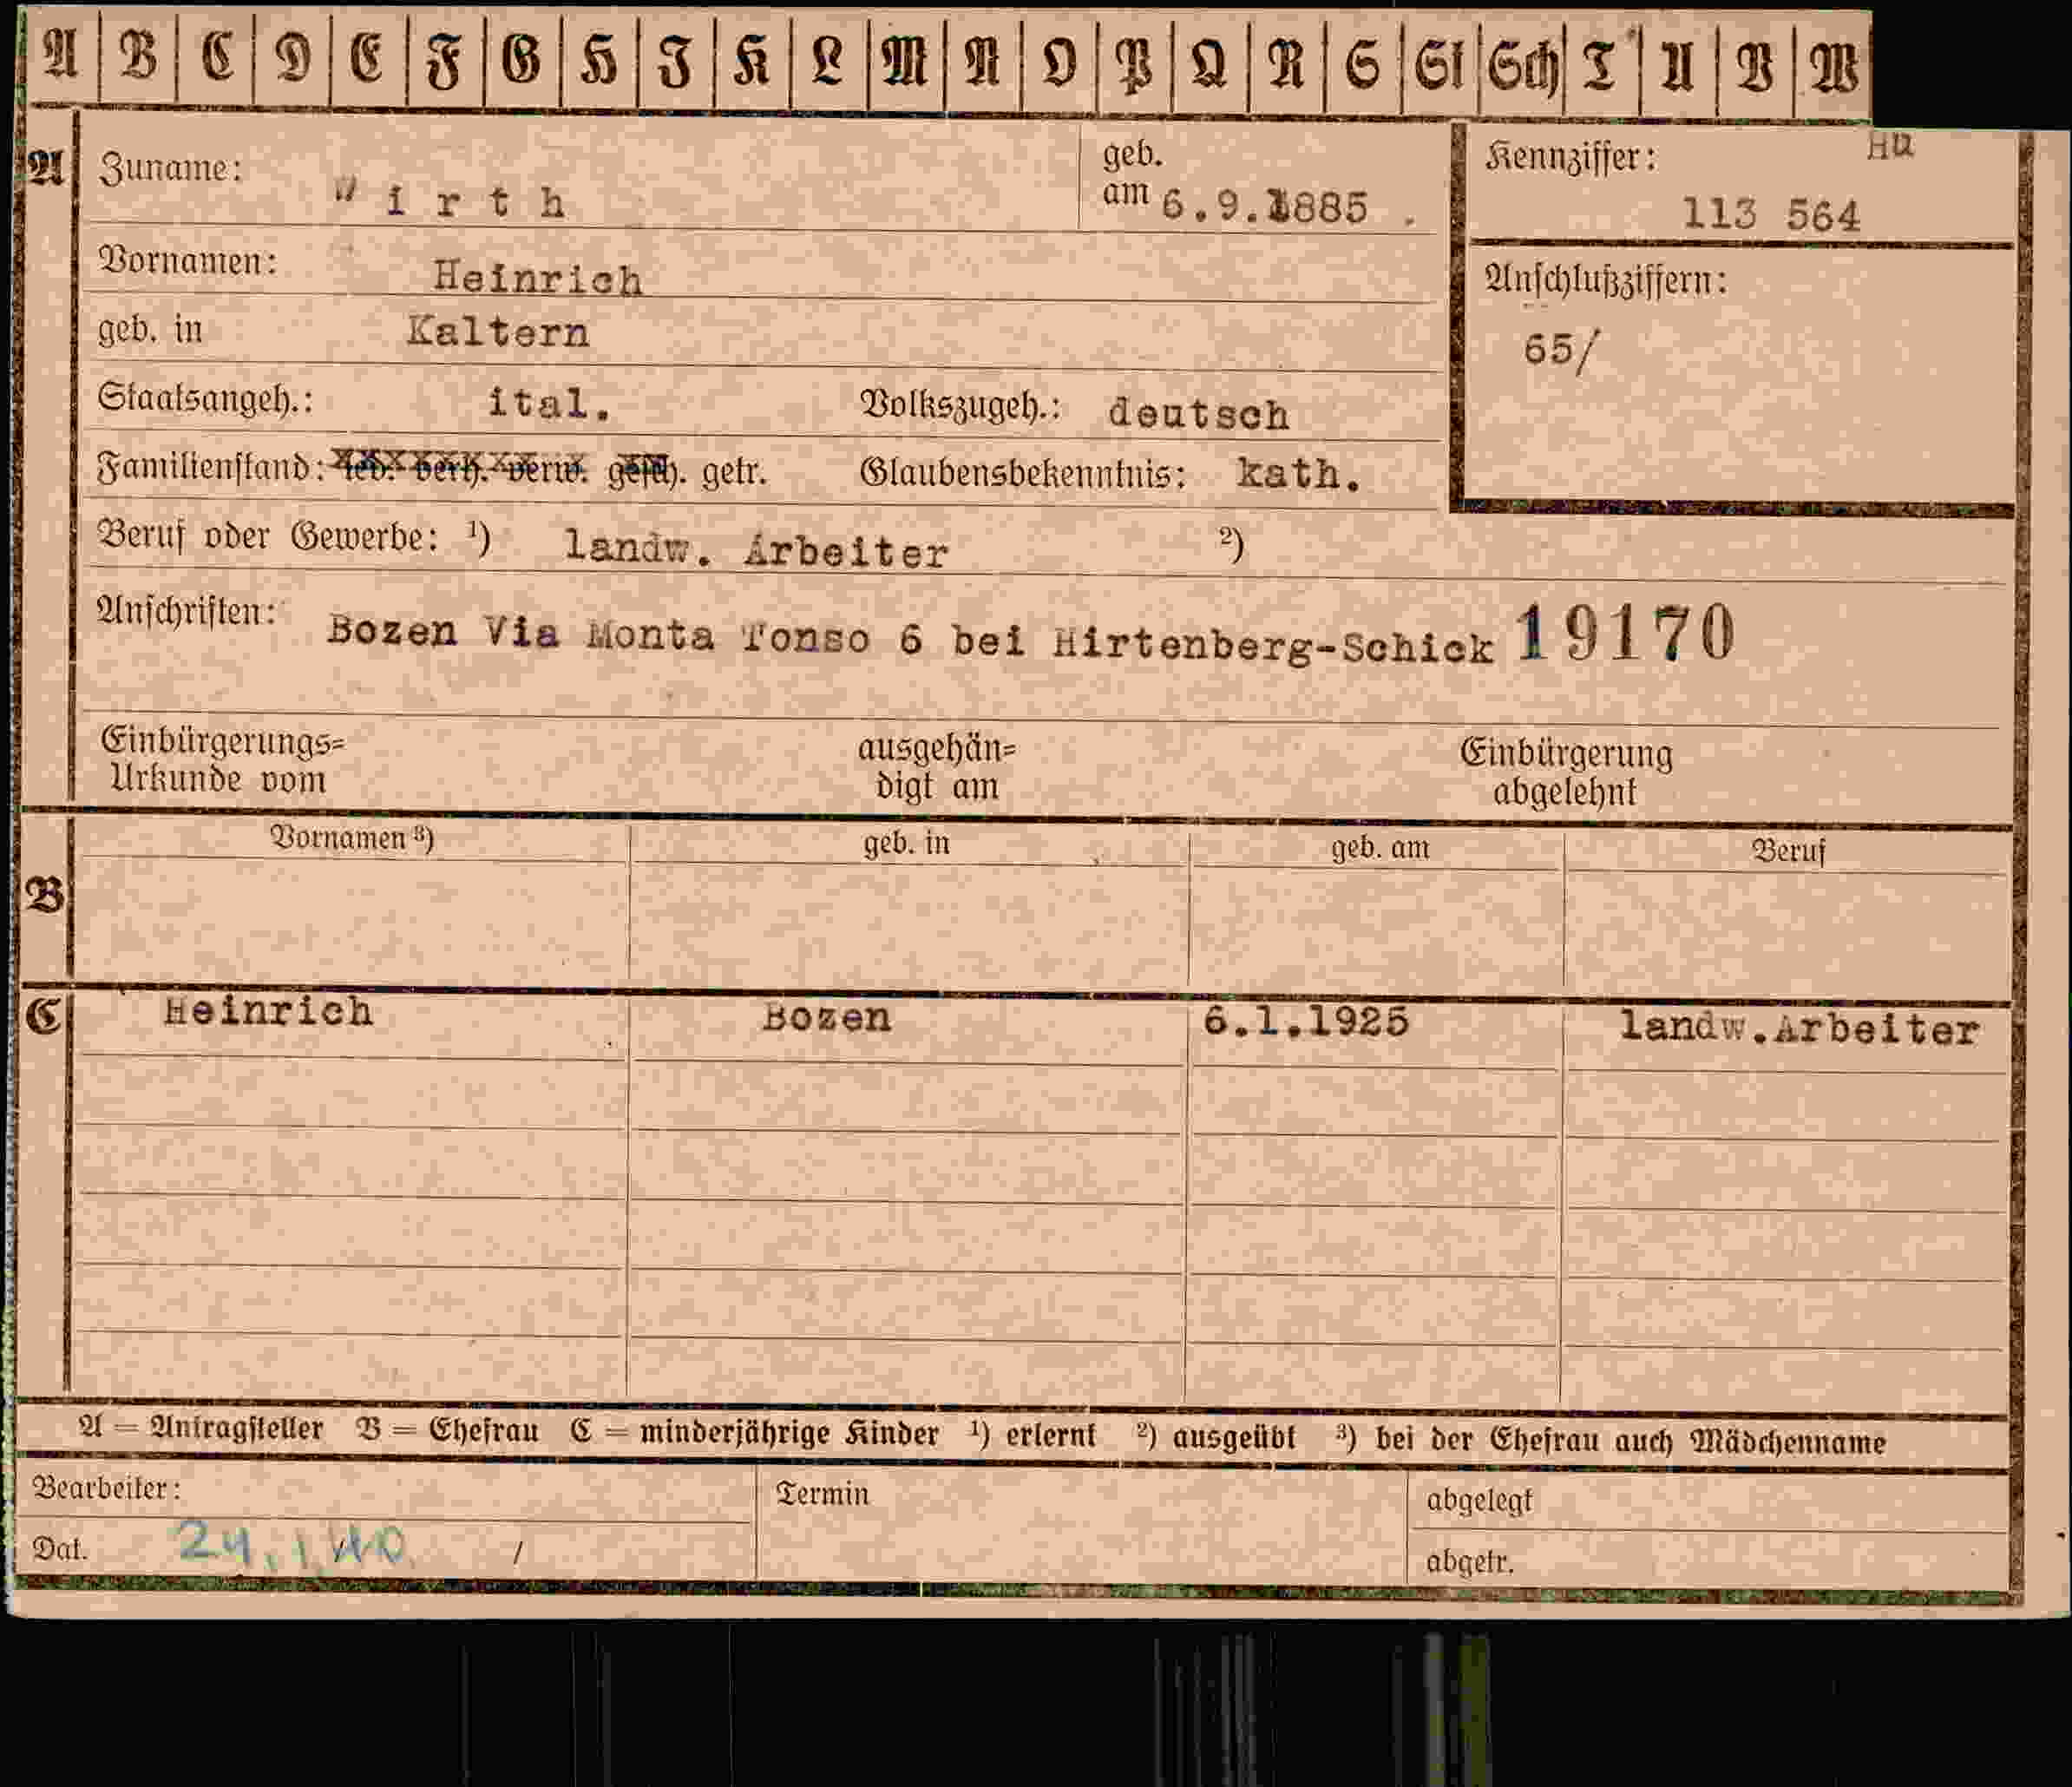 A B C D E F G H I K L M N O P Q R S St Sch T U V W
A Zuname: Wirth geb. am 6.9.1885 . Kennziffer: Hu
113 564
Vornamen: Heinrich Anschlußziffern:
geb. in Kaltern 65/
Staatsangeh.: ital. Volkszugeh.: deutsch
Familienstand: led. verh. verw. gesch. getr. Glaubensbekenntnis: kath.
Beruf oder Gewerbe: ¹) landw. Arbeiter ²)
Anschriften: Bozen Via Monta Tonso 6 bei Hirtenberg-Schick 19170
Einbürgerungs= ausgehän= Einbürgerung
Urkunde vom digt am abgelehnt
Vornamen ³) geb. in geb. am Beruf
B
C Heinrich Bozen 6.1.1925 landw.Arbeiter
A = Antragsteller B = Ehefrau C = minderjährige Kinder ¹) erlernt ²) ausgeübt ³) bei der Ehefrau auch Mädchenname
Bearbeiter: Termin abgelegt
Dat. 24.1.40. / abgetr.